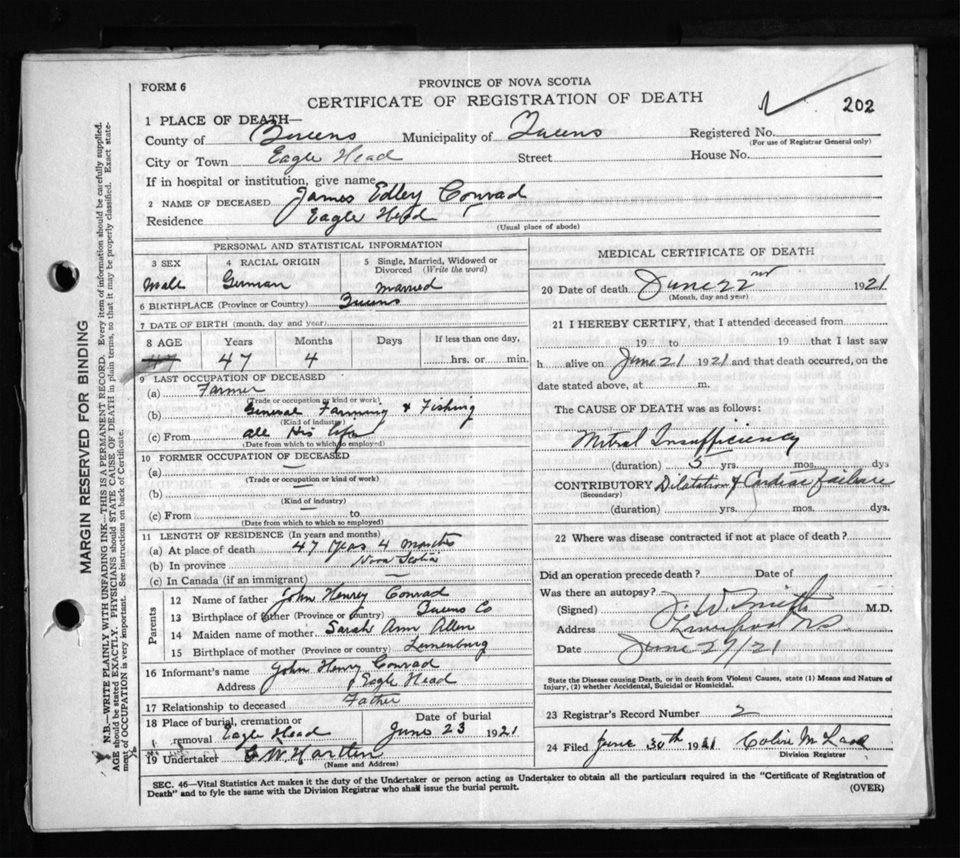 FORM 6
PROVINCE OF NOVA SCOTIA
CERTIFICATE OF REGISTRATION OF DEATH
202
1 PLACE OF DEATH—
County of Queens Municipality of Queens Registered No.
(For use of Registrar General only)
City or Town Eagle Head Street House No.
If in hospital or institution, give name
2 NAME OF DECEASED James Edley Conrad
Residence Eagle Head
(Usual place of abode)
PERSONAL AND STATISTICAL INFORMATION
3 SEX 4 RACIAL ORIGIN 5 Single, Married, Widowed or Divorced (Write the word)
Male German Married
6 BIRTHPLACE (Province or Country) Queens
7 DATE OF BIRTH (month, day and year)
8 AGE Years Months Days If less than one day,
47 47 4 hrs. or min.
9 LAST OCCUPATION OF DECEASED
(a) Farmer
(Trade or occupation or kind of work)
(b) General Farming & Fishing
(Kind of industry)
(c) From all His life
(Date from which to which so employed)
10 FORMER OCCUPATION OF DECEASED
(a) —
(Trade or occupation or kind of work)
(b) —
(Kind of industry)
(c) From — to
(Date from which to which so employed)
11 LENGTH OF RESIDENCE (In years and months)
(a) At place of death 47 Years 4 Months
(b) In province Nova Scotia
(c) In Canada (if an immigrant) —
Parents
12 Name of father John Henry Conrad
13 Birthplace of father (Province or country) Queens Co
14 Maiden name of mother Sarah Ann Allen
15 Birthplace of mother (Province or country) Lunenburg
16 Informant's name John Henry Conrad
Address Eagle Head
17 Relationship to deceased Father
18 Place of burial, cremation or removal Eagle Head Date of burial June 23 1921
19 Undertaker
(Name and Address)
MEDICAL CERTIFICATE OF DEATH
20 Date of death June 22nd 1921
(Month, day and year)
21 I HEREBY CERTIFY, that I attended deceased from
19 to 19 that I last saw
h alive on June 21 1921 and that death occurred, on the
date stated above, at m.
The CAUSE OF DEATH was as follows:
Mitral Insufficiency
(duration) 5 yrs. mos. dys
CONTRIBUTORY Dilatation & Cardiac failure
(Secondary)
(duration) yrs. mos. dys.
22 Where was disease contracted if not at place of death?
Did an operation precede death? Date of
Was there an autopsy?
(Signed) J. W. Smith M.D.
Address Liverpool N.S.
Date June 27/21
State the Disease causing Death, or in death from Violent Causes, state (1) Means and Nature of
Injury, (2) whether Accidental, Suicidal or Homicidal.
23 Registrar's Record Number 2
24 Filed June 30th 1921 Colin
Division Registrar
SEC. 46—Vital Statistics Act makes it the duty of the Undertaker or person acting as Undertaker to obtain all the particulars required in the "Certificate of Registration of
Death" and to fyle the same with the Division Registrar who shall issue the burial permit. (OVER)
MARGIN RESERVED FOR BINDING
N.B.—WRITE PLAINLY WITH UNFADING INK—THIS IS A PERMANENT RECORD. Every item of information should be carefully supplied.
AGE should be stated EXACTLY. PHYSICIANS should STATE CAUSE OF DEATH in plain terms, so that it may be properly classified. Exact state-
ment of OCCUPATION is very important. See instructions on back of Certificate.